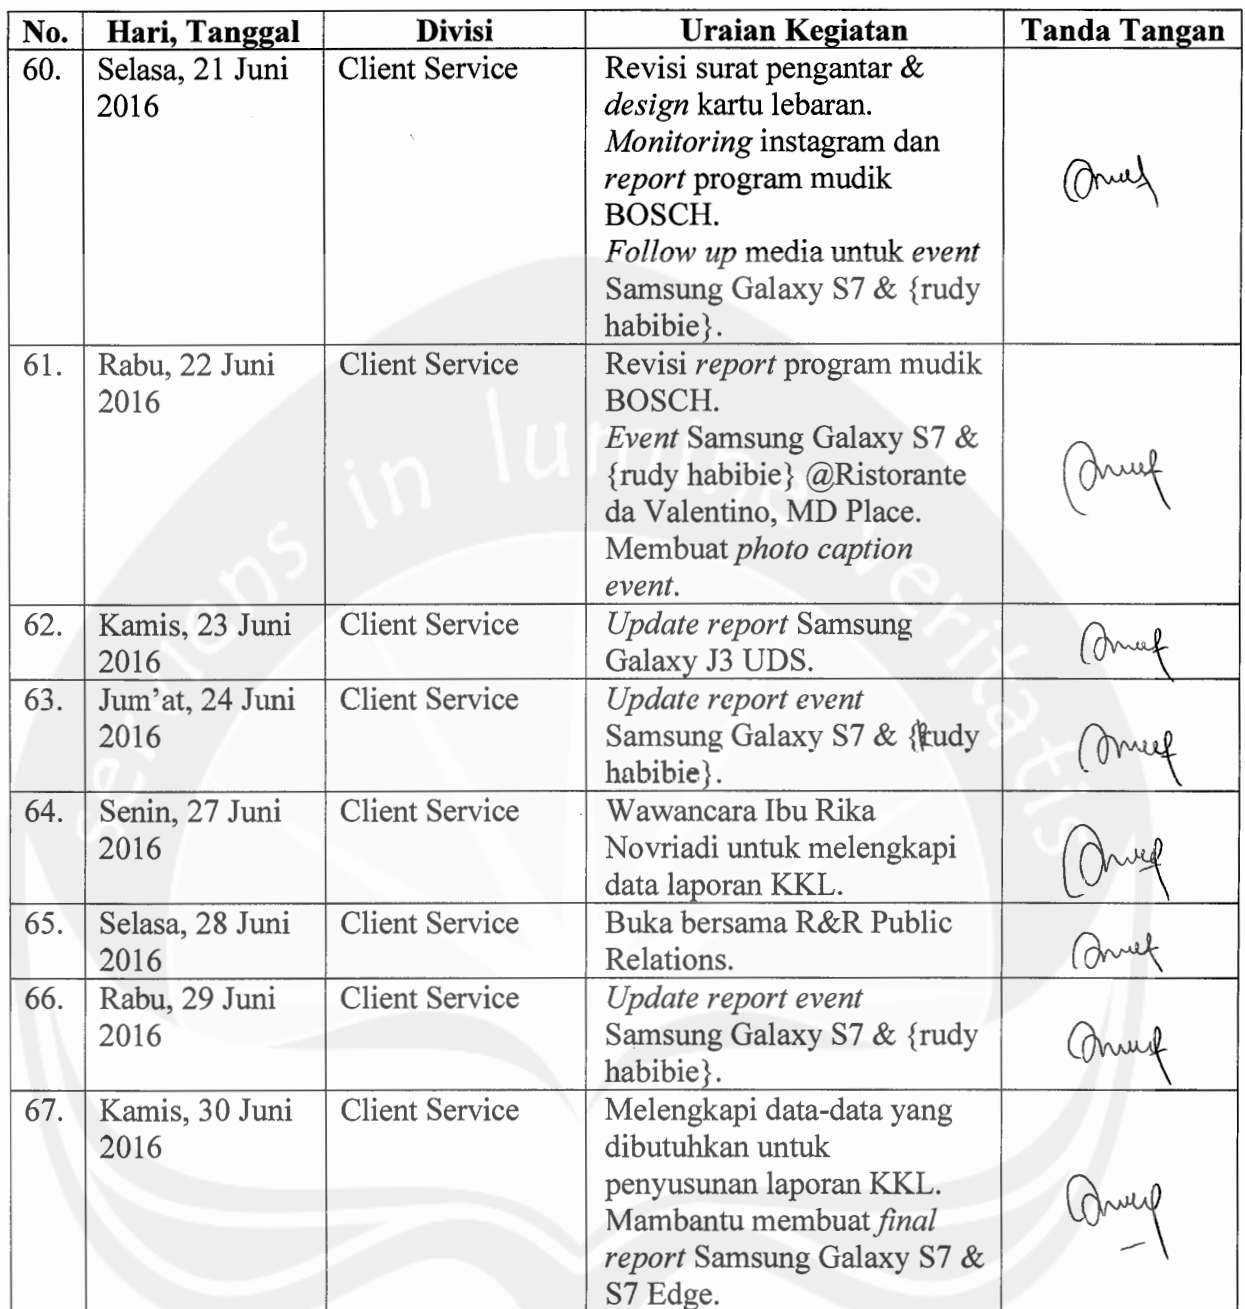 No. Hari, Tanggal Divisi Uraian Kegiatan Tanda Tangan
60. Selasa, 21 Juni Client Service Revisi surat pengantar &
2016 design kartu lebaran.
Monitoring instagram dan
report program mudik
BOSCH.
Follow up media untuk event
Samsung Galaxy S7 & {rudy
habibie}.
61. Rabu, 22 Juni Client Service Revisi report program mudik
2016 BOSCH.
Event Samsung Galaxy S7 &
{rudy habibie} @Ristorante
da Valentino, MD Place.
Membuat photo caption
event.
62. Kamis, 23 Juni Client Service Update report Samsung
2016 Galaxy J3 UDS.
63. Jum'at, 24 Juni Client Service Update report event
2016 Samsung Galaxy S7 & {rudy
habibie}.
64. Senin, 27 Juni Client Service Wawancara Ibu Rika
2016 Novriadi untuk melengkapi
data laporan KKL.
65. Selasa, 28 Juni Client Service Buka bersama R&R Public
2016 Relations.
66. Rabu, 29 Juni Client Service Update report event
2016 Samsung Galaxy S7 & {rudy
habibie}.
67. Kamis, 30 Juni Client Service Melengkapi data-data yang
2016 dibutuhkan untuk
penyusunan laporan KKL.
Mambantu membuat final
report Samsung Galaxy S7 &
S7 Edge.
serviens in lumine veritatis